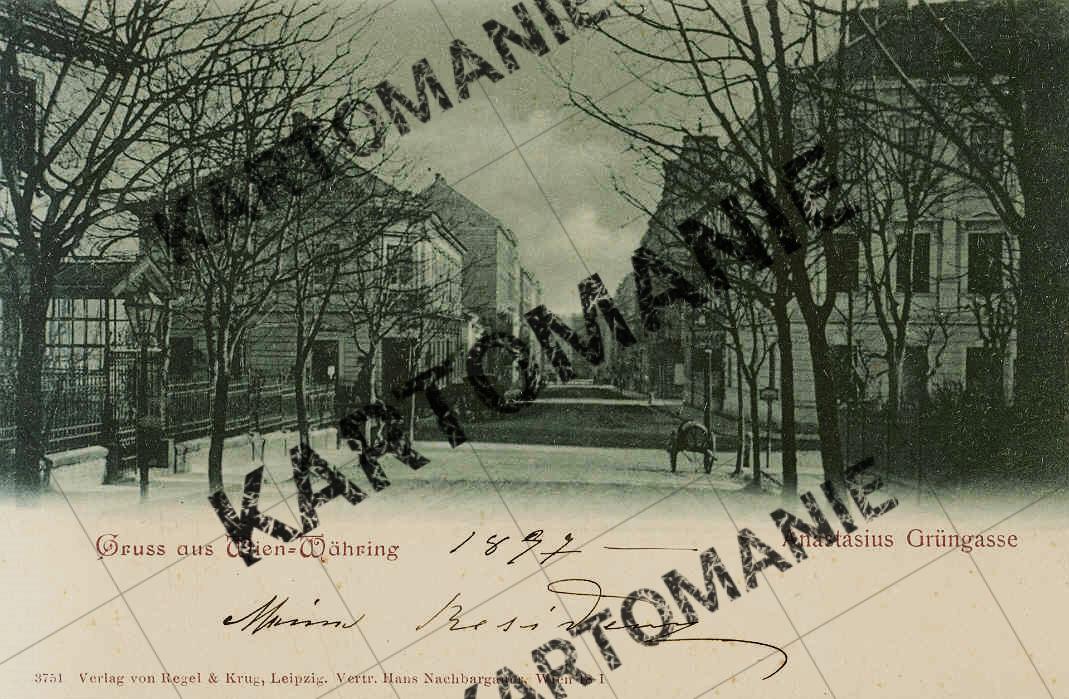 KARTOMANIE
KARTOMANIE
KARTOMANIE
Gruss aus Wien-Währing
1897
Anastasius Grüngasse
Meine Residenz
3751 Verlag von Regel & Krug, Leipzig. Vertr. Hans Nachbargauer, Wien 18-I